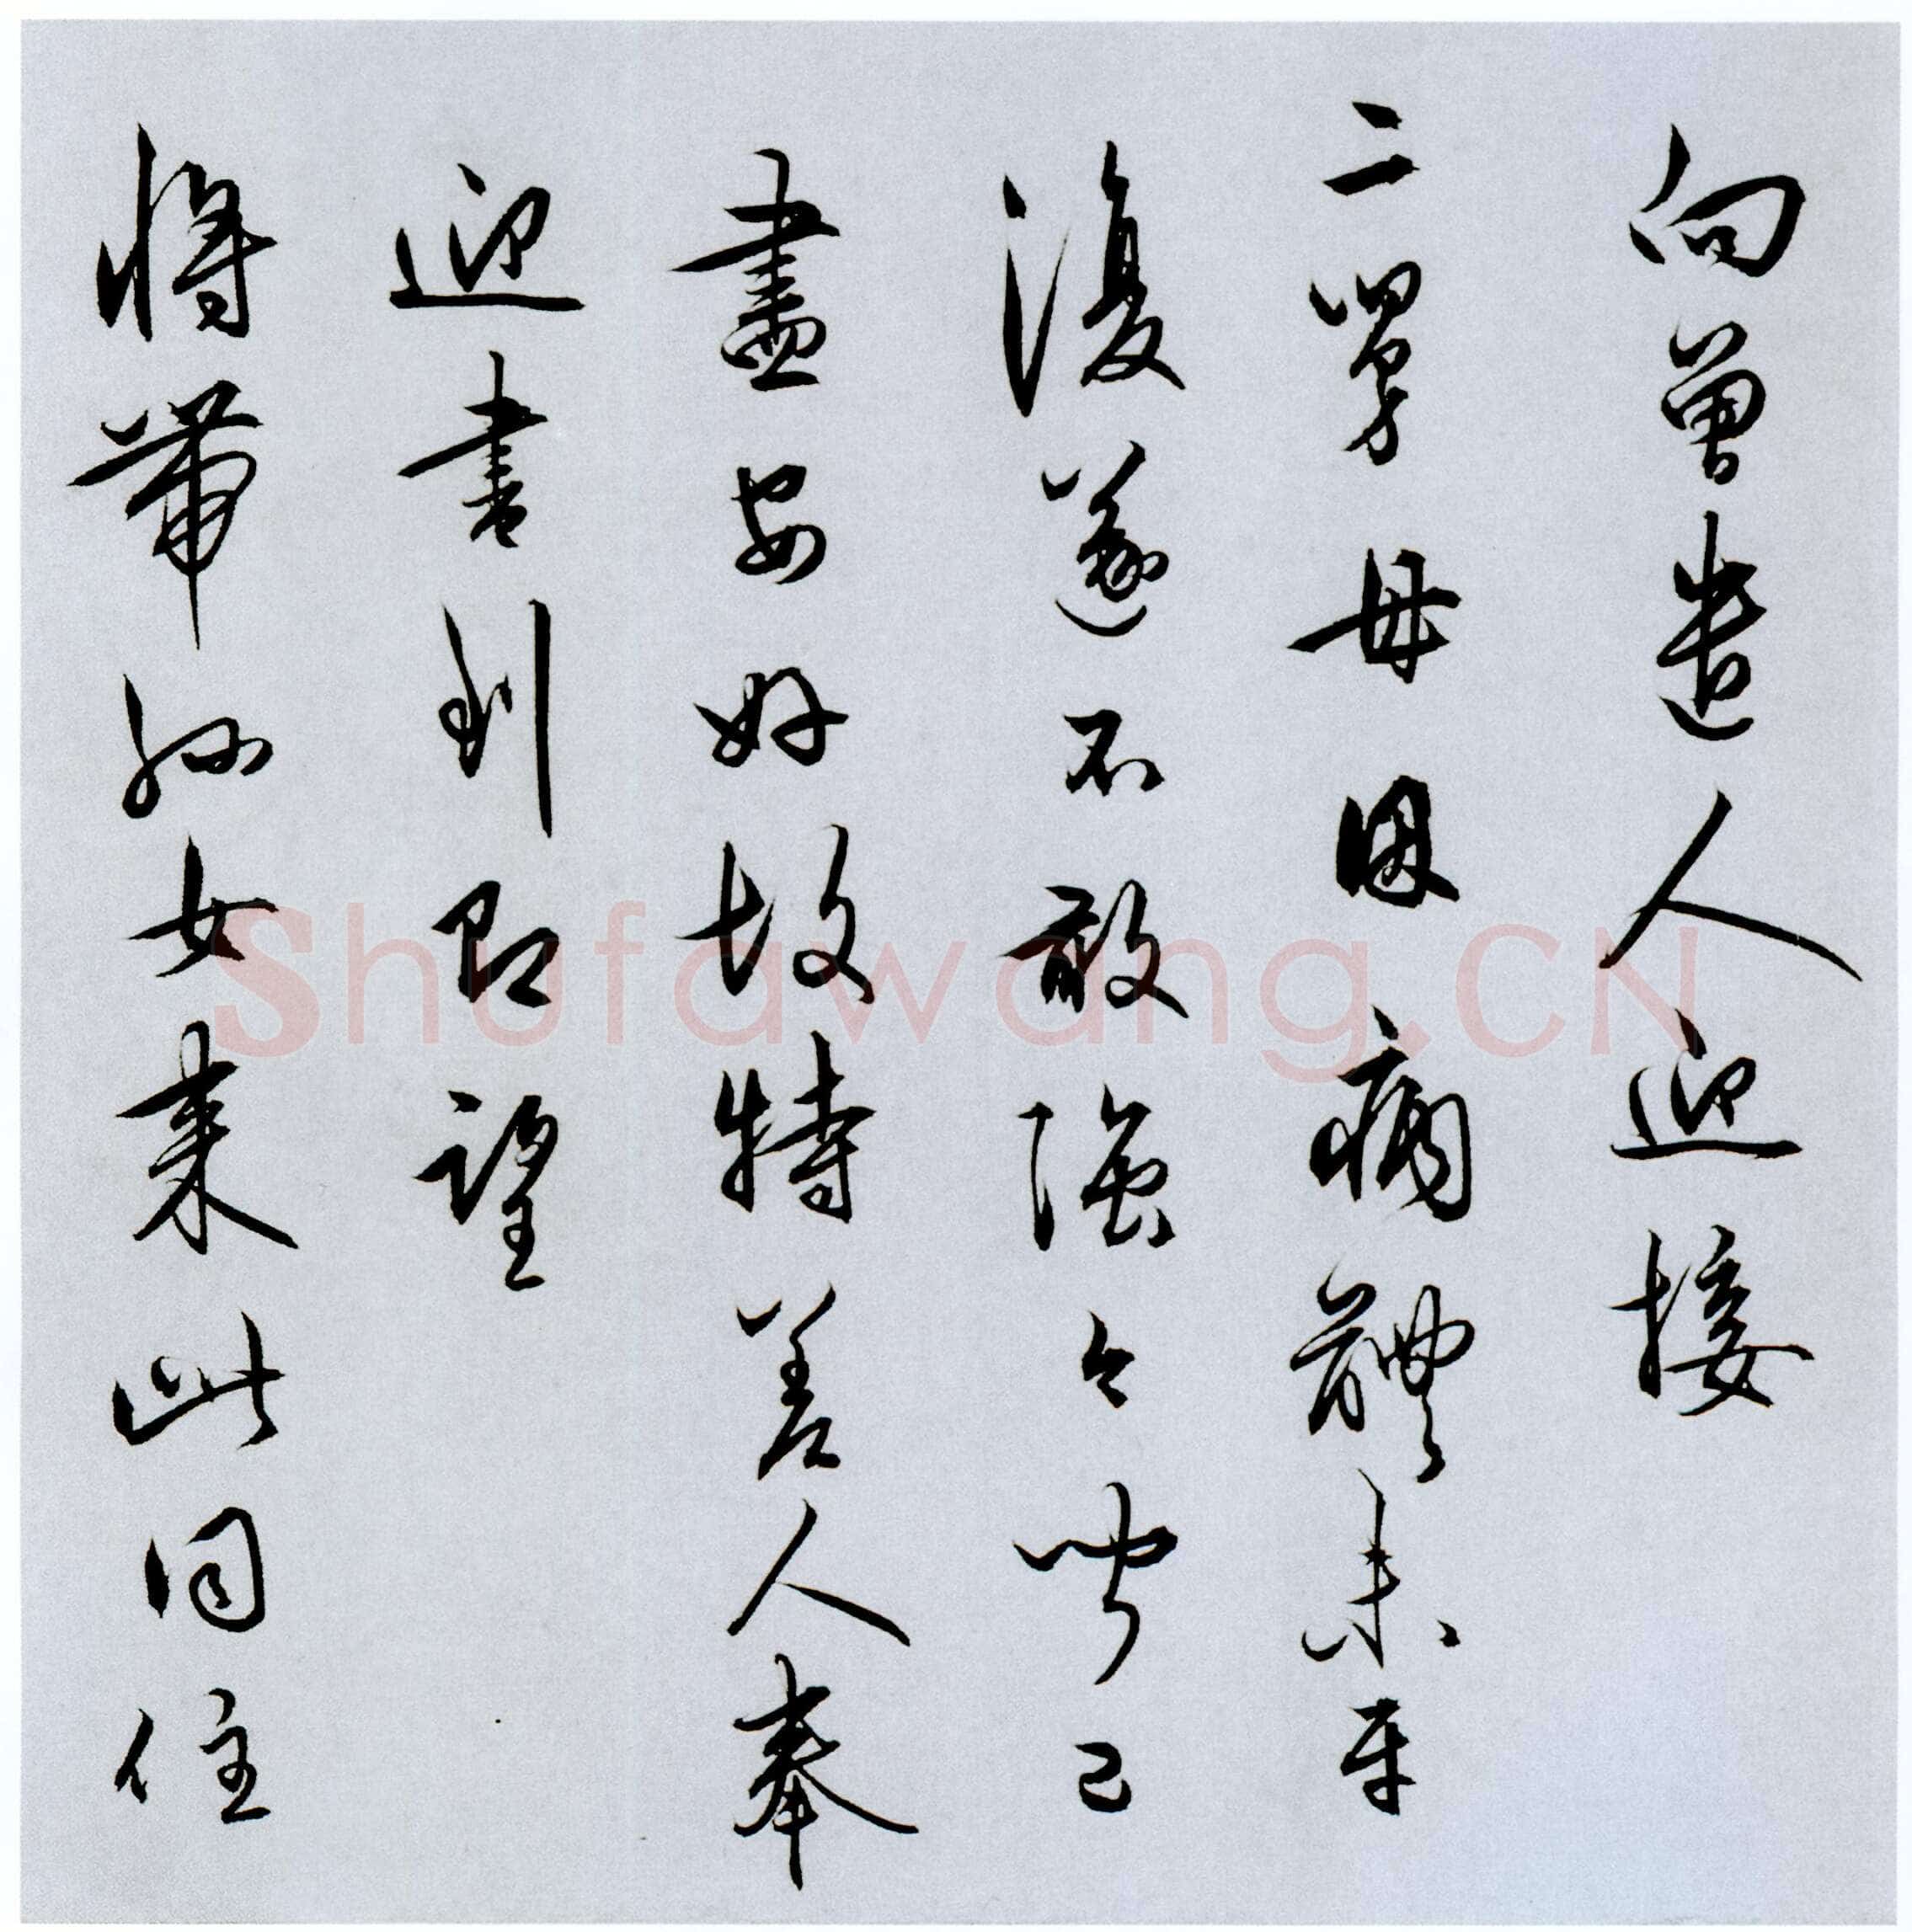 向曾遣人迎接
二舅母因病體未平
復遂不敢強今聞已
盡安好故特差人奉
迎書到即望
將帶孫女來此同住
Shufawang.CN